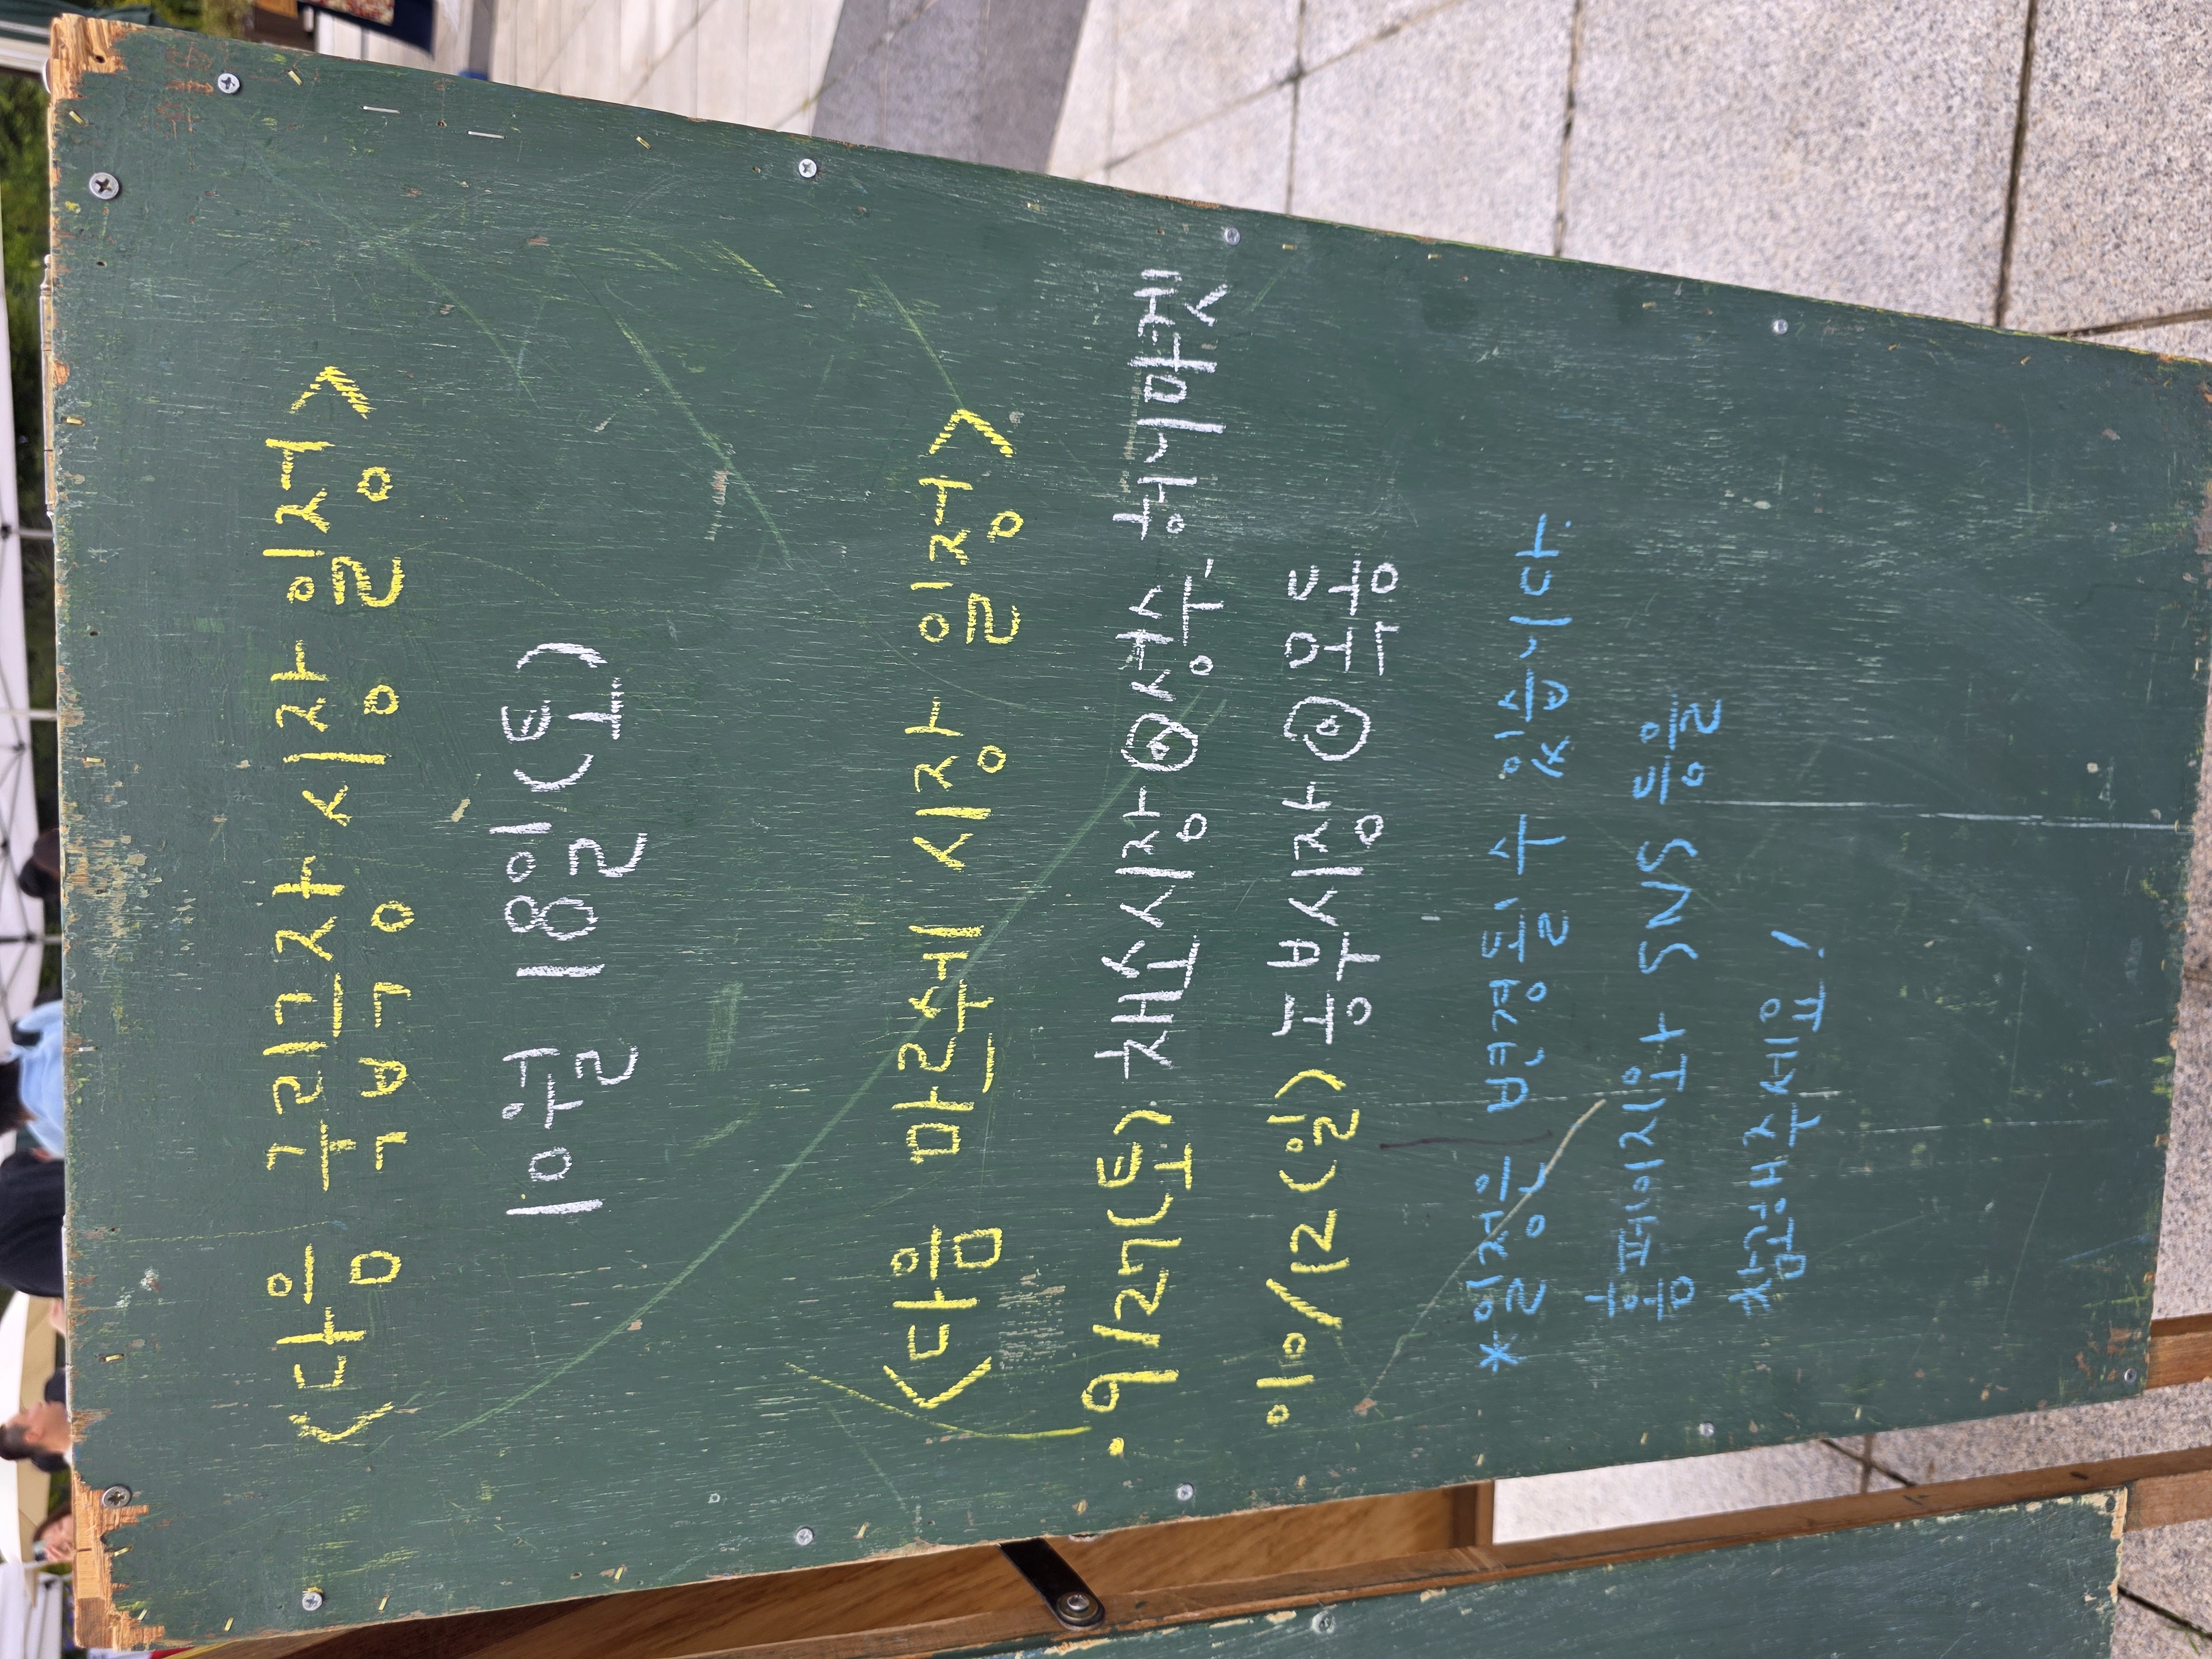 <다음 국립극장 시장 일정>
10월 18일(토)
<다음 마르쉐 시장 일정>
·9/27(토) 채소시장@성수, 허니마켓
·10/12(일) 농부시장@목동
*일정은 변경될 수 있습니다.
홈페이지와 SNS 등을
참고해주세요!